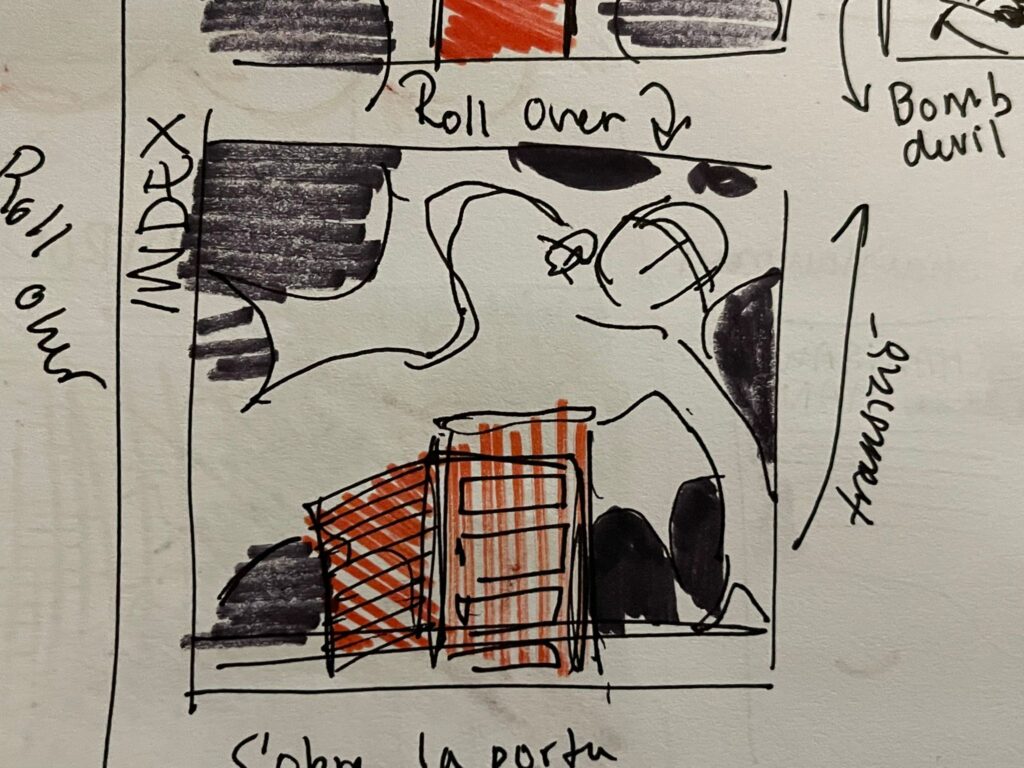 Roll Over
Bomb
devil
INDEX
Roll over
transició
S'obre la porta